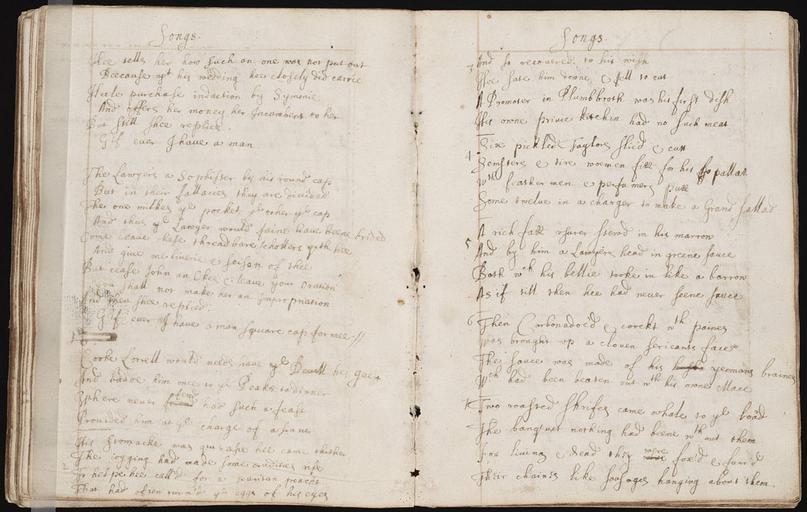 Songs.
Shee tells her how such an one was not put out
Beecause yt his wedding hee closely did carrie
Heele purchase induction by Symonie
And offers her money her Incumbent to bee
But still shee replied
Gif ever I have a man
The Lawyers a Sophister by his round cap
But in their fallacies they are divided
The one milkes ye pocket ye other ye cap
And then ye Lawyer would faine have beene brided
Come leave these thread bare schollers
And give me livorie & seison of thee
But cease John an Okee & leave your Oration
shall not make her an Impropriation
And then shee replied
Gif ever I have a man square cap for mee //
Cooke Lorrell would needs have ye Devill his guest
And bad him once to ye Peake to dinner
Where never had such a feast
Provided him at ye charge of a sinner
His stomacke was quesie hee came thither
The iogging had made some crudities rise
To helpe hee call'd for a puritan poacht
That had often turn'd ye eggs of his eyes
Songs.
And so recovered to his wish
Hee sate him downe & fell to eat
A Promoter in Plumbbroth was his first dish
His owne privie kitchin had no such meat
Six pickled Taylors slic'd & cutt
Semsters & tire women fitt for his pallat
Wth feather men & perfumers putt
Some twelve in a charger to make a Grand sallad
A rich fatt usurer stewd in his marrow
And by him a Lawyers head in greene sauce
Both wch his bellie tooke in like a barrow
As if till then hee had never seene sauce
Then Carbonadoed & cookt wth paines
Was brought up a cloven serieants face
The sauce was made of his yeomans braines
Wch had been beaten out wth his owne Mace
Two roasted shrifes came whole to ye board
The banquet nothing had beene wth out them
Both living & dead they were fox'd & fur'd
Their chaines like sosages hanging about them